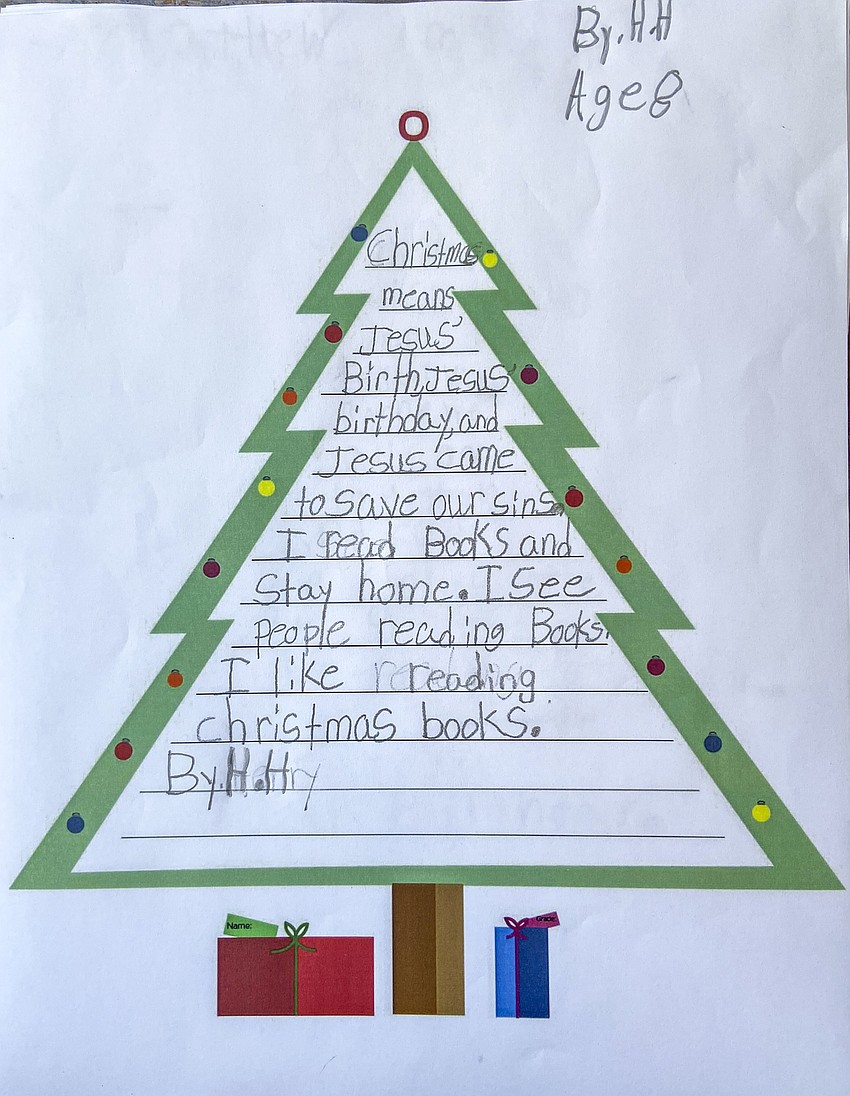 By. H.H
Age 8
Christmas
means
Jesus'
Birth, Jesus'
birthday, and
Jesus came
to save our sins.
I read Books and
Stay home. I See
people reading Books.
I like reading
christmas books.
By. H.H
Name:
Grade: